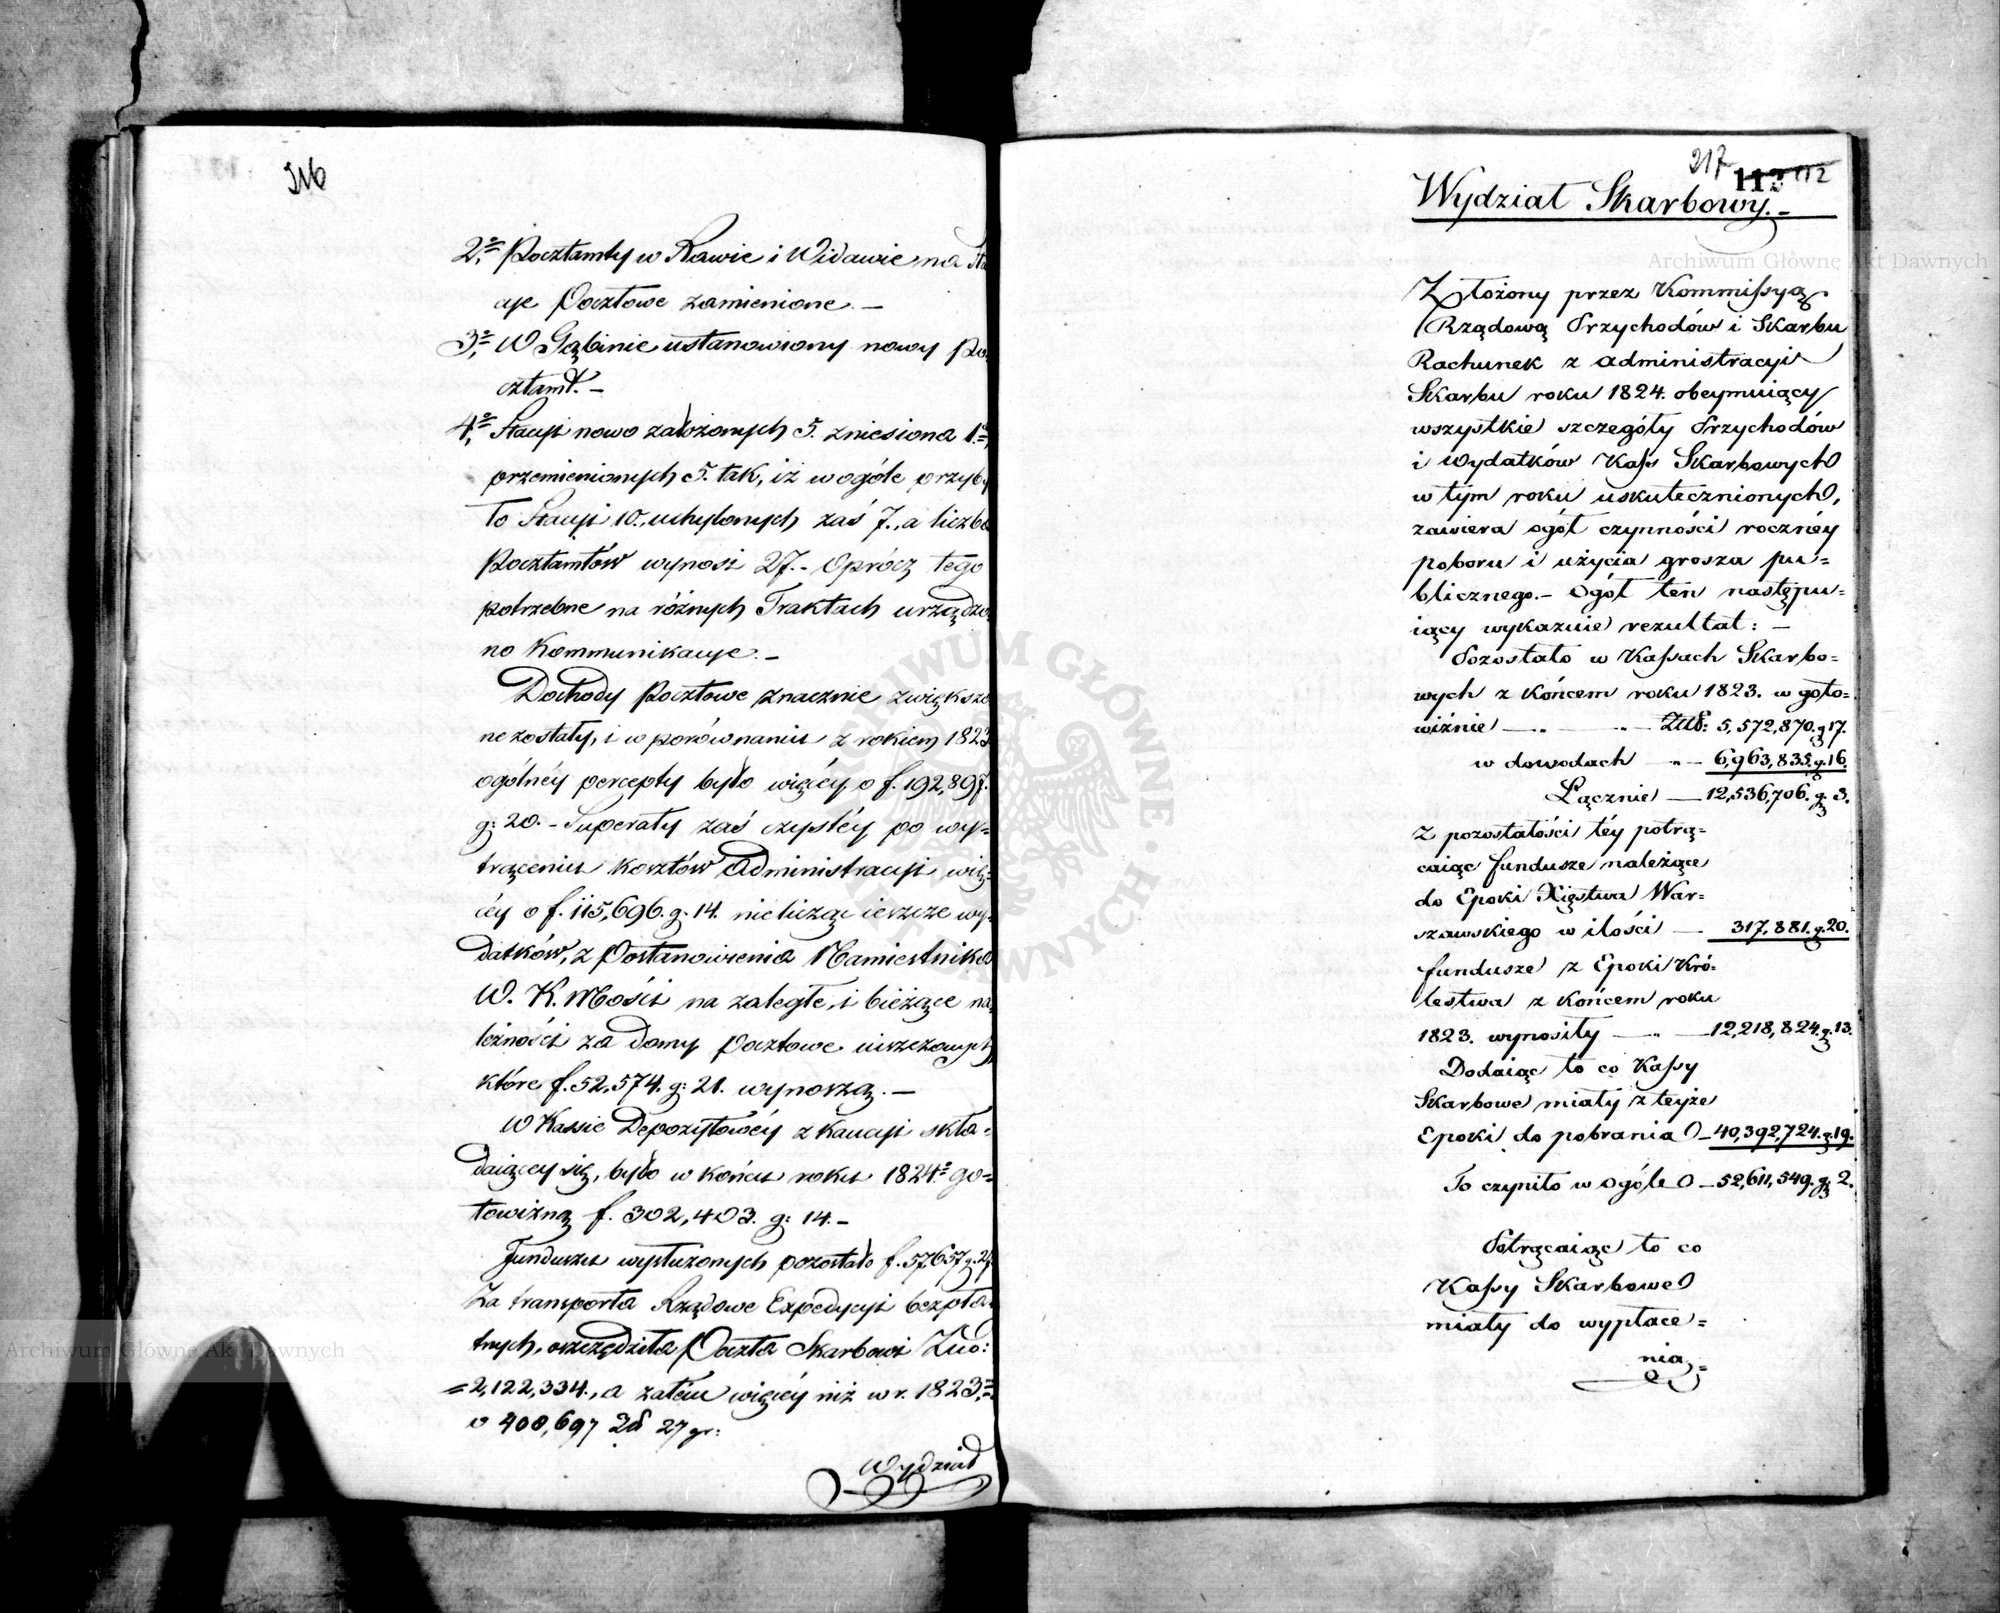 216
2.° Pocztamty w Rawie i Widawie na Sta
cye Pocztowe zamienione. —
3.° W Gąbinie ustanowiony nowy Po
cztamt. —
4.° Stacyi nowo założonych 5. zniesiona 1.
przemienionych 5. tak, iż w ogóle przyby
ło Stacyi 10., uchylonych zaś 7., a liczba
Pocztamtów wynosi 27. - Oprócz tego
potrzebne na różnych Traktach urządzo
no Kommunikacye. —
Dochody Pocztowe znacznie zwiększo
ne zostały, i w porównaniu z rokiem 1823
ogólnéy percepty było więcéy o f. 192,897.
g: 20. - Superaty zaś czystéy po wy=
trąceniu kosztów Administracyi wię=
céy o f. 115,696. g. 14. nielicząc ieszcze wy=
datków, z Postanowienia Namiestnika
W. K. Mości na zaległe, i bieżące na
leżności za domy Pocztowe
które f. 52,574. g: 21. wynoszą. —
W Kassie Depozytowéy z Kaucyi skła=
daiącey się, było w końcu roku 1824° go=
towizną f. 302,403. g: 14. —
Funduszu wysłużonych pozostało f. 57,657 g. 29.
Za transporta Rządowe Expedycyi bezpła
tnych, oszczędziła Poczta Skarbowi Złło:
= 2,122,334., a zatém więcéy niż w r. 1823.
o 408,697 Zł 27 gr:
Wydział
217 113 112
Wydział Skarbowy. —
Złożony przez Kommissyą
Rządową Przychodów i Skarbu
Rachunek z administracyi
Skarbu roku 1824. obeymuiący
wszystkie szczegóły Przychodów
i Wydatków Kass Skarbowych
w tym roku uskutecznionych,
zawiera ogół czynności rocznéy
poboru i użycia grosza pu=
blicznego. - Ogół ten następu=
iący wykazuie rezultat: —
Pozostało w Kassach Skarbo=
wych z końcem roku 1823. w goto=
wiźnie — „ — „ — Złł: 5,572,870. g 17.
w dowodach — „ — 6,963,835. g. 16.
Łącznie — 12,536,706. g. 3.
Z pozostałości téy potrą=
caiąc fundusze należące
do Epoki Xięstwa War=
szawskiego w ilości — 317,881. g. 20.
fundusze z Epoki Kró=
lestwa z końcem roku
1823. wynosiły — „ — 12,218,824. g. 13.
Dodaiąc to co Kassy
Skarbowe miały z teyże
Epoki do pobrania — 40,392,724. g. 19.
To czyniło w ogóle — 52,611,549. g. 2.
Potrącaiąc to co
Kassy Skarbowe
miały do wypłace=
nia =
Archiwum Główne Akt Dawnych
Archiwum Główne Akt Dawnych
ARCHIWUM GŁÓWNE AKT DAWNYCH